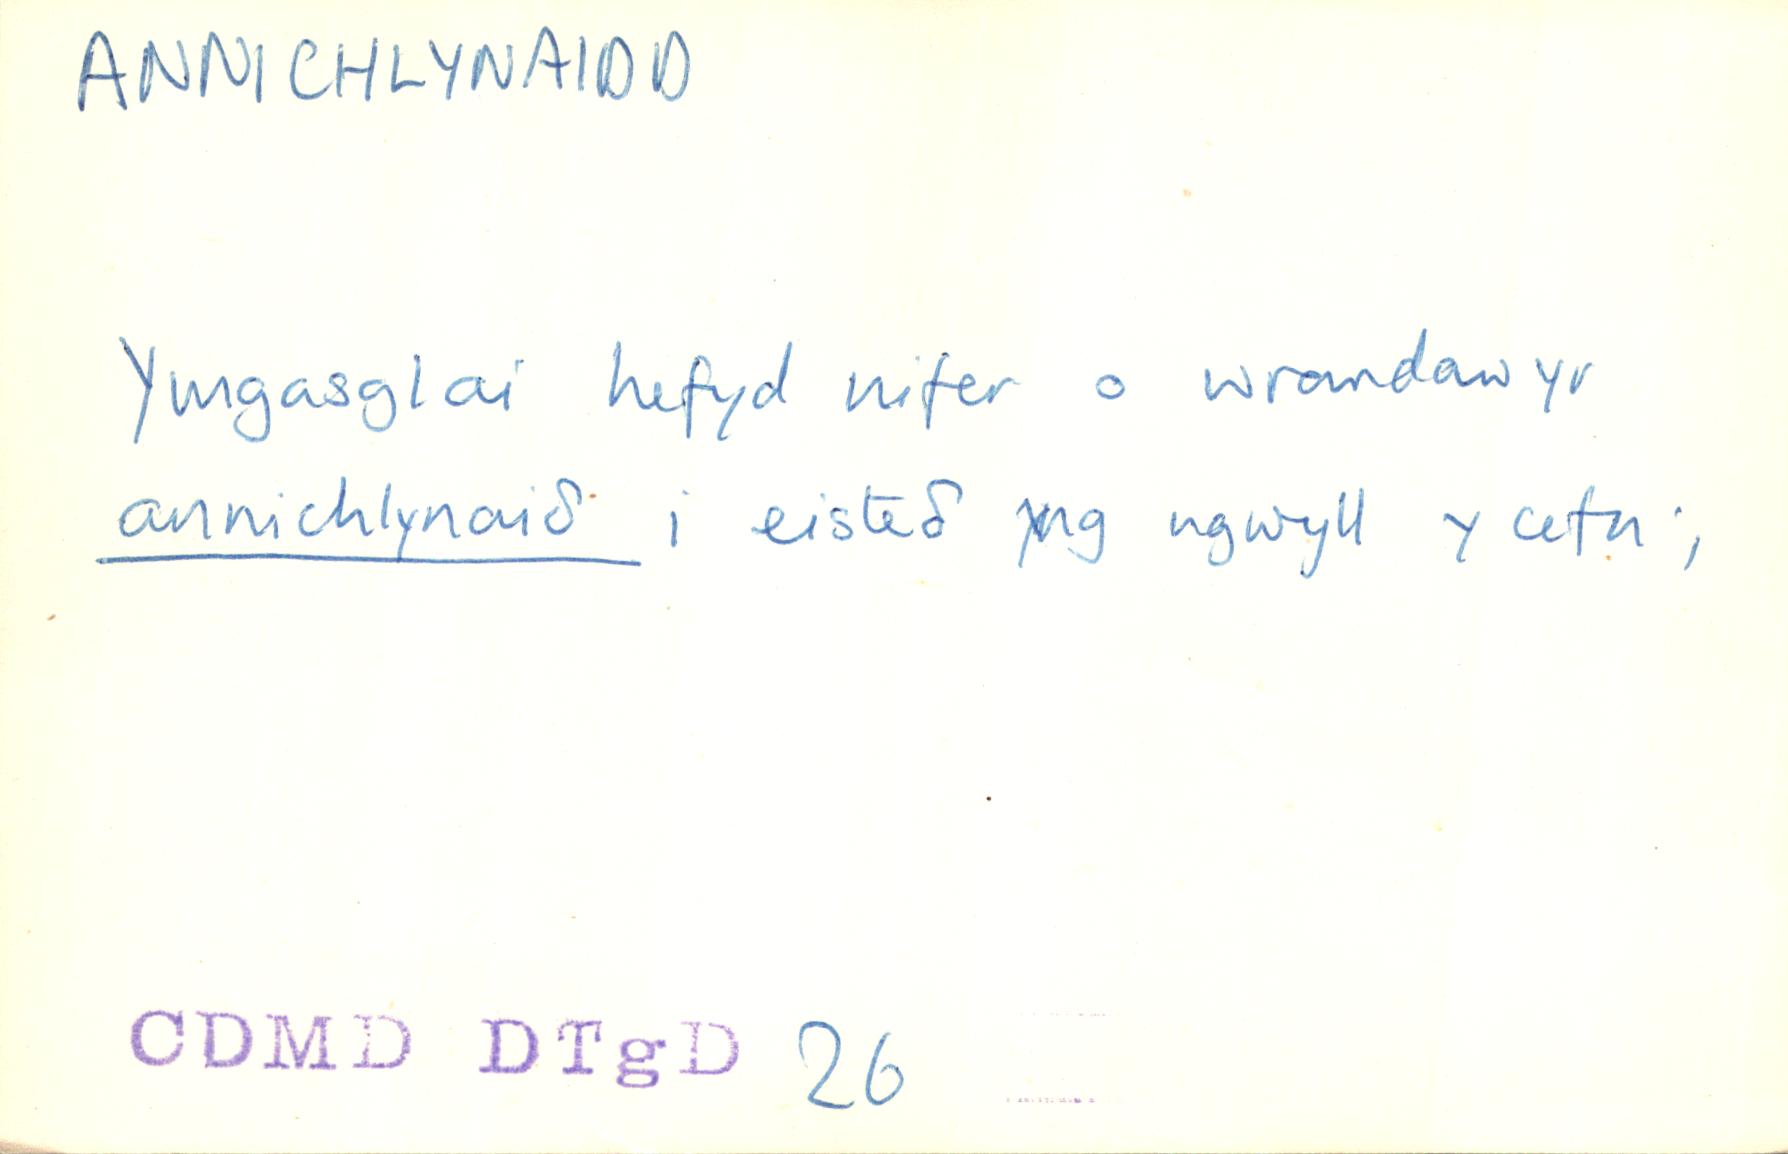 ANNICHLYNAIDD
Ymgasglai hefyd nifer o wrandawyr
annichlynaiδ i eisteδ yng ngwyll y cefn;
CDMD DTgD 26